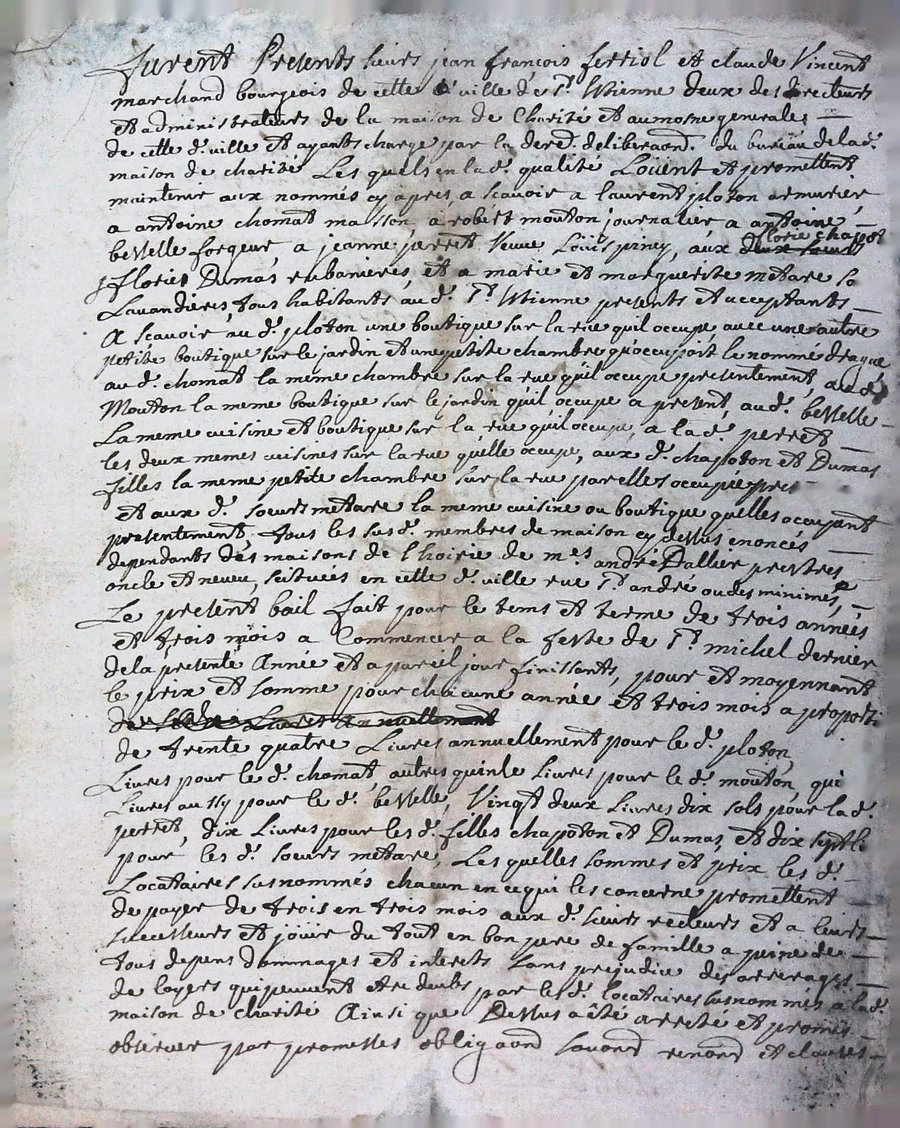 furent Presents sieurs jean françois ferriol et claude Vincent
marchand bourgeois de cette d. ville de St. Etienne deux des Recteurs
et administrateurs de la maison de Charité et aumosne generalle
de cette d. ville et ayants charge par la dere d. deliberaond. du bureau de la d.
maison de charité Les quels en la d. qualité Loüent et promettent
maintenir aux nommés cy apres, a scavoir a laurent ploton armurier
a antoine chomat masson, a robert mouton journalier a antoine
besselle forgeur a jeanne perret veuve Louis piney, aux florie chapoton
& florie Dumas rubanieres, et a marie et marguerite métare
Lavandieres, tous habitants au d. St. Etienne presents et acceptants
A scavoir au d. ploton une boutique sur la rue quil occupe avec une autre
petite boutique sur le jardin et une petite chambre qu'occupoit le nommé dragué
au d. chomat la meme chambre sur la rue quil occupe presentement, au d.
Mouton la meme boutique sur le jardin quil occupe a present, au d. besselle
La meme cuisine et boutique sur la rue quil occupe, a la d. perret
les deux memes cuisines sur la rue quelle occupe, aux d. chapoton et Dumas
filles la meme petite chambre sur la rue par elles occupée
et aux d. soeurs métare la meme cuisine ou boutique quelles occupent
presentement, tous les susd. membres de maison cy dessus enoncés
dependants des maisons de l'hoirie de mes. andré Dallier prestres
oncle et neveu, scituées en cette d. ville rue St. andré ou des minimes
Le present bail fait pour le tems et terme de trois années
et trois mois a Commencer a la feste de St. michel dernier
de la presente Année et a pareil jour finissants, pour et moyennant
le prix et somme pour chacune année et trois mois a proporti
Livres annuellement
de trente quatre Livres annuellement pour le d. ploton,
Livres pour le d. chomat, autres quinse Livres pour le d. mouton, qui
Livres aussy pour le d. besselle, Vingt deux Livres dix sols pour la d.
perret, dix Livres pour les d. filles chapoton et Dumas, et dix sept l.
pour les d. soeurs métare, Les quelles sommes et prix les d.
Locataires susnommés chacun en ce qui les concerne promettent
de payer de trois en trois mois aux d. sieurs recteurs et a leurs
successeurs et joüir du tout en bon pere de famille a peine de
tous depens dommages et interets sans prejudice des arrerages
de loyers qui peuvent etre deubs par les d. locataires susnommés a la d.
maison de charité Ainsi que Dessus a été arresté et promis
observer par promesses obligaond soumond renond et clauses